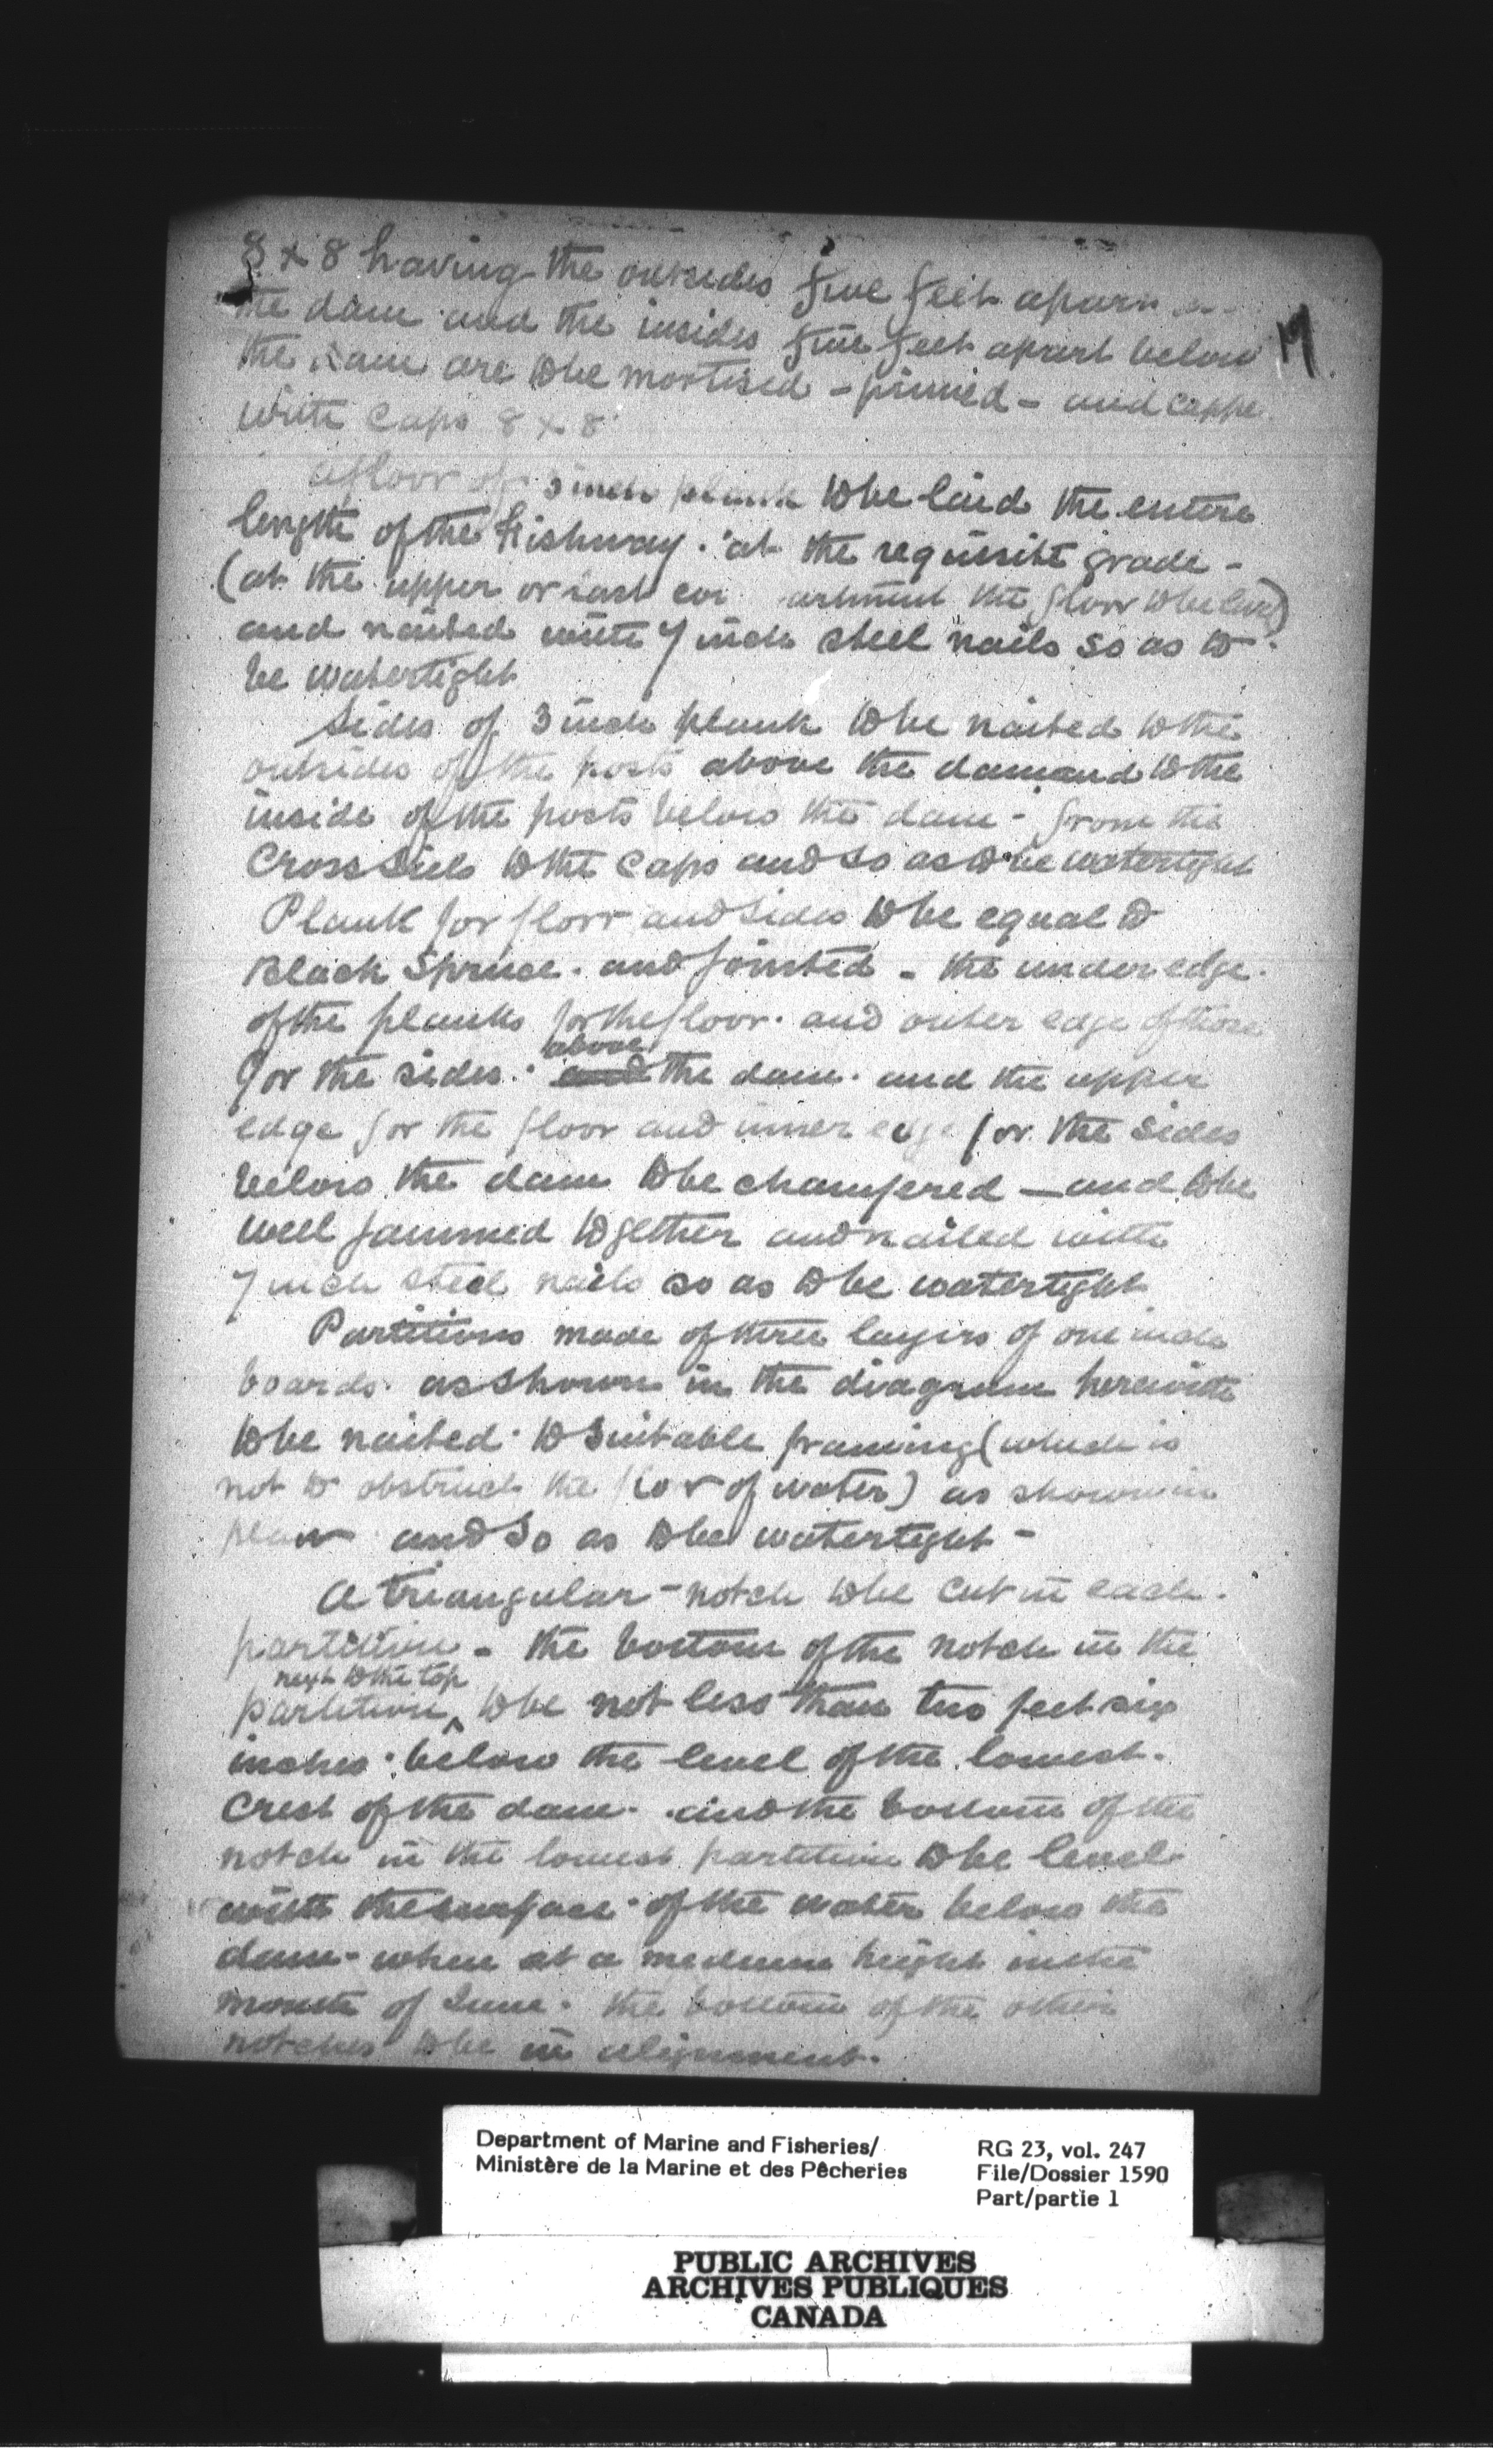 8 x 8 having the outsides five feet apart
the dam and the insides five feet apart below
17
the dam are to be mortised - pinned - and cappe
with Caps 8 x 8
a floor of 3 inch plank to be laid the entire
length of the Fishway. at the requisite grade -
(at the upper or last artment the floor to be level)
and nailed with 7 inch steel nails so as to
be watertight
Sides of 3 inch plank to be nailed to the
outsides of the posts above the dam and to the
inside of the posts below the dam - from the
Cross Sills to the Caps and so as to be watertight
Plank for floor and sides to be equal to
Black Spruce. and jointed - the under edge
of the planks for the floor. and outer edge of those
above
for the sides. and the dam. and the upper
edge for the floor and inner edge for the sides
below the dam to be champered — and to be
well jammed together and nailed with
7 inch steel nails so as to be watertight
Partitions made of three layers of one inch
boards. as shown in the diagram herewith
to be nailed to suitable framing (which is
not to obstruct the flow of water) as shown in
plan and so as to be watertight -
A triangular - notch to be cut in each
partition - the bottom of the notch in the
next to the top
partition ^ to be not less than two feet six
inches below the level of the lowest
Crest of the dam. and the bottom of the
notch in the lowest partition to be level
with the surface of the water below the
dam - when at a medium height in the
month of June. the bottom of the other
notches to be in alignment.
Department of Marine and Fisheries/
Ministère de la Marine et des Pêcheries
RG 23, vol. 247
File/Dossier 1590
Part/partie 1
PUBLIC ARCHIVES
ARCHIVES PUBLIQUES
CANADA